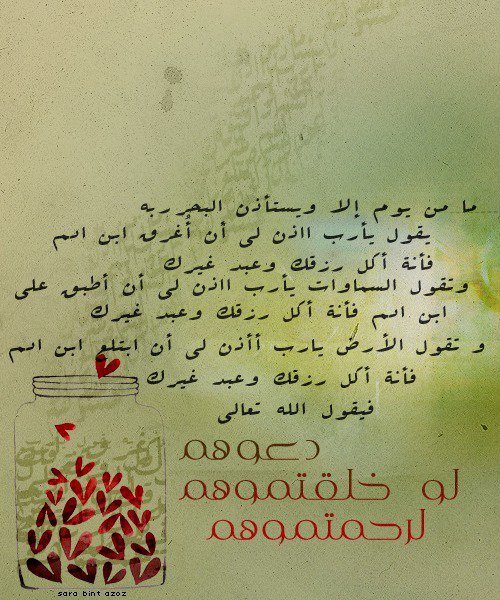 ما من يوم إلا ويستأذن البحر ربه
يقول يأرب ااذن لى أن أغرق ابن ادم
فأنة أكل رزقك وعبد غيرك
وتقول السماوات يأرب ااذن لى أن أطبق على
ابن ادم فأنة أكل رزقك وعبد غيرك
و تقول الأرض يارب أأذن لى أن ابتلع ابن ادم
فأنة أكل رزقك وعبد غيرك
فيقول الله تعالى
دعوهم
لو خلقتموهم
لرحمتموهم
sara bint azoz